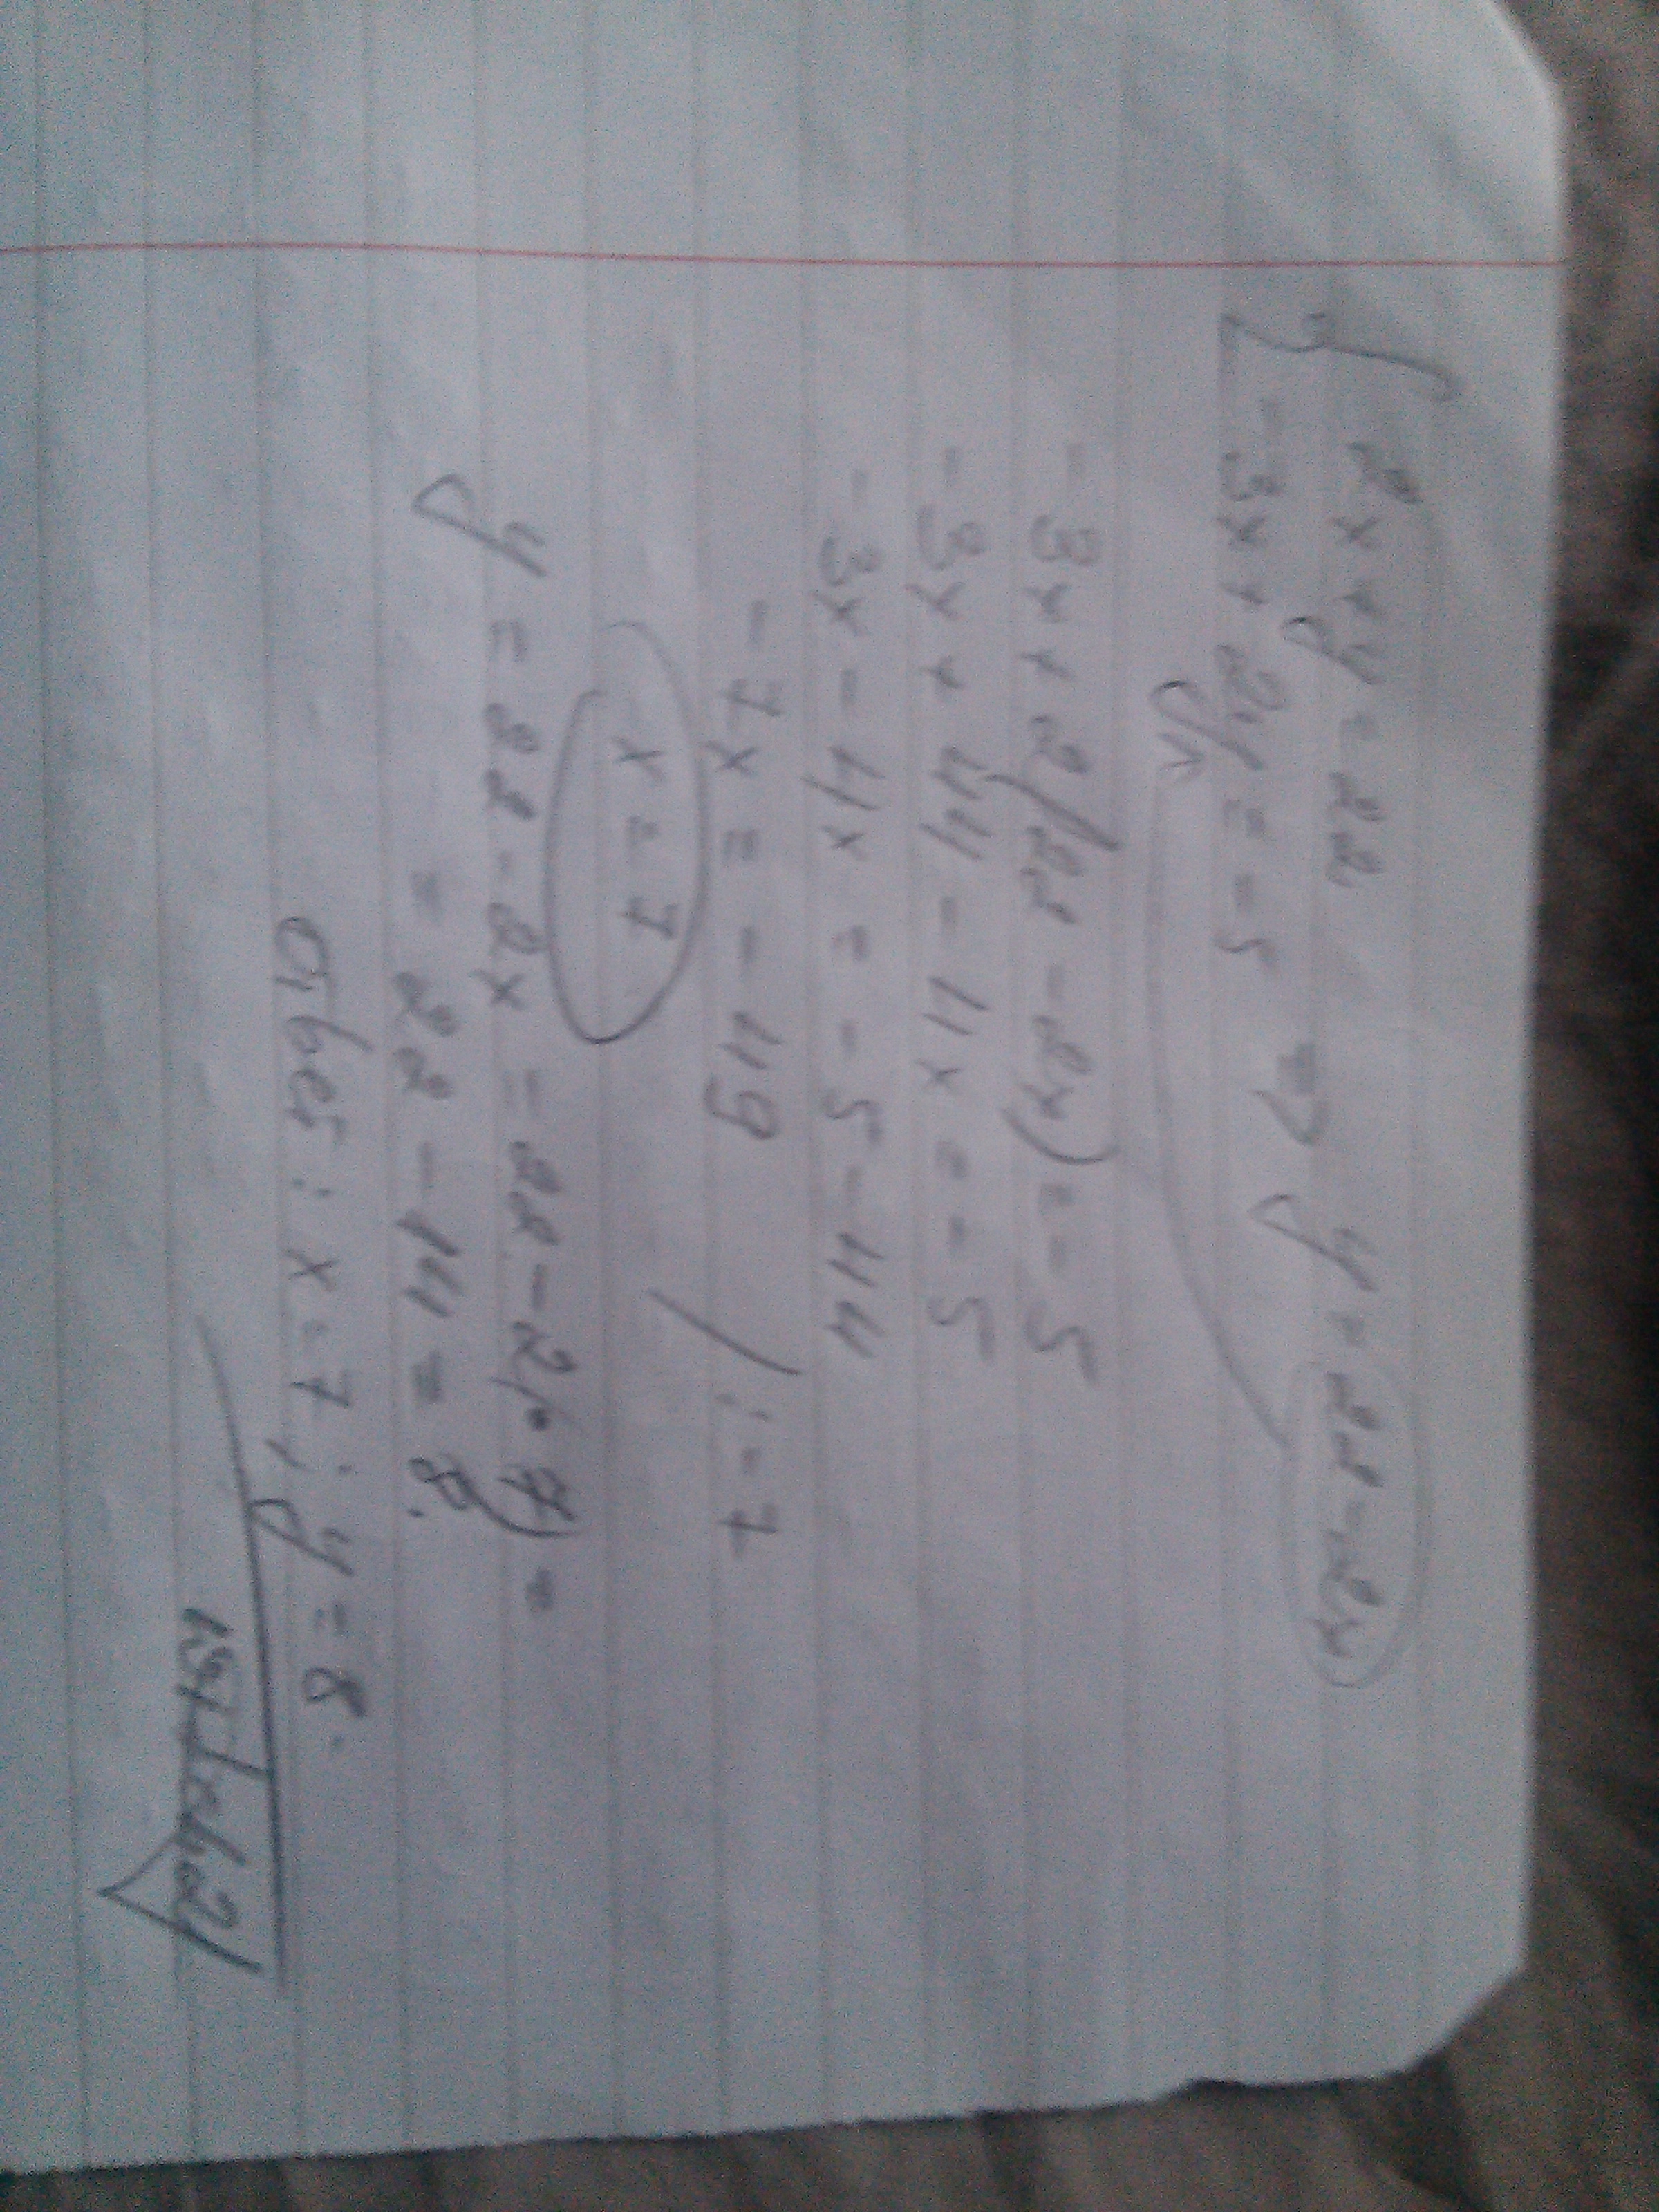 { 2x + y = 22
-3x + 2y = -5 => y = 22 - 2x
-3x + 2(22 - 2x) = -5
-3x + 44 - 4x = -5
-3x - 4x = -5 - 44
-7x = -49 / : -7
x = 7
y = 22 - 2x = 22 - 2(7) =
= 22 - 14 = 8.
Ответ: x = 7; y = 8.